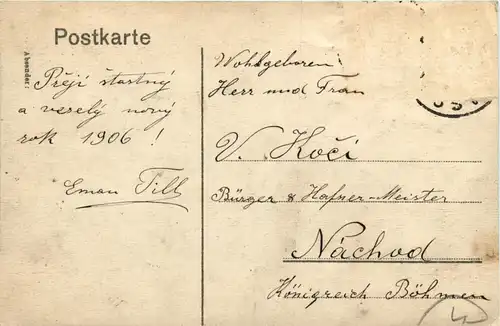 Postkarte
Absender:
Přeji šťastný
a veselý nový
rok 1906 !
Eman Till
Wohlgeboren
Herr und Frau
V. Kočí
Bürger & Hafner-Meister
Náchod
Königreich Böhmen